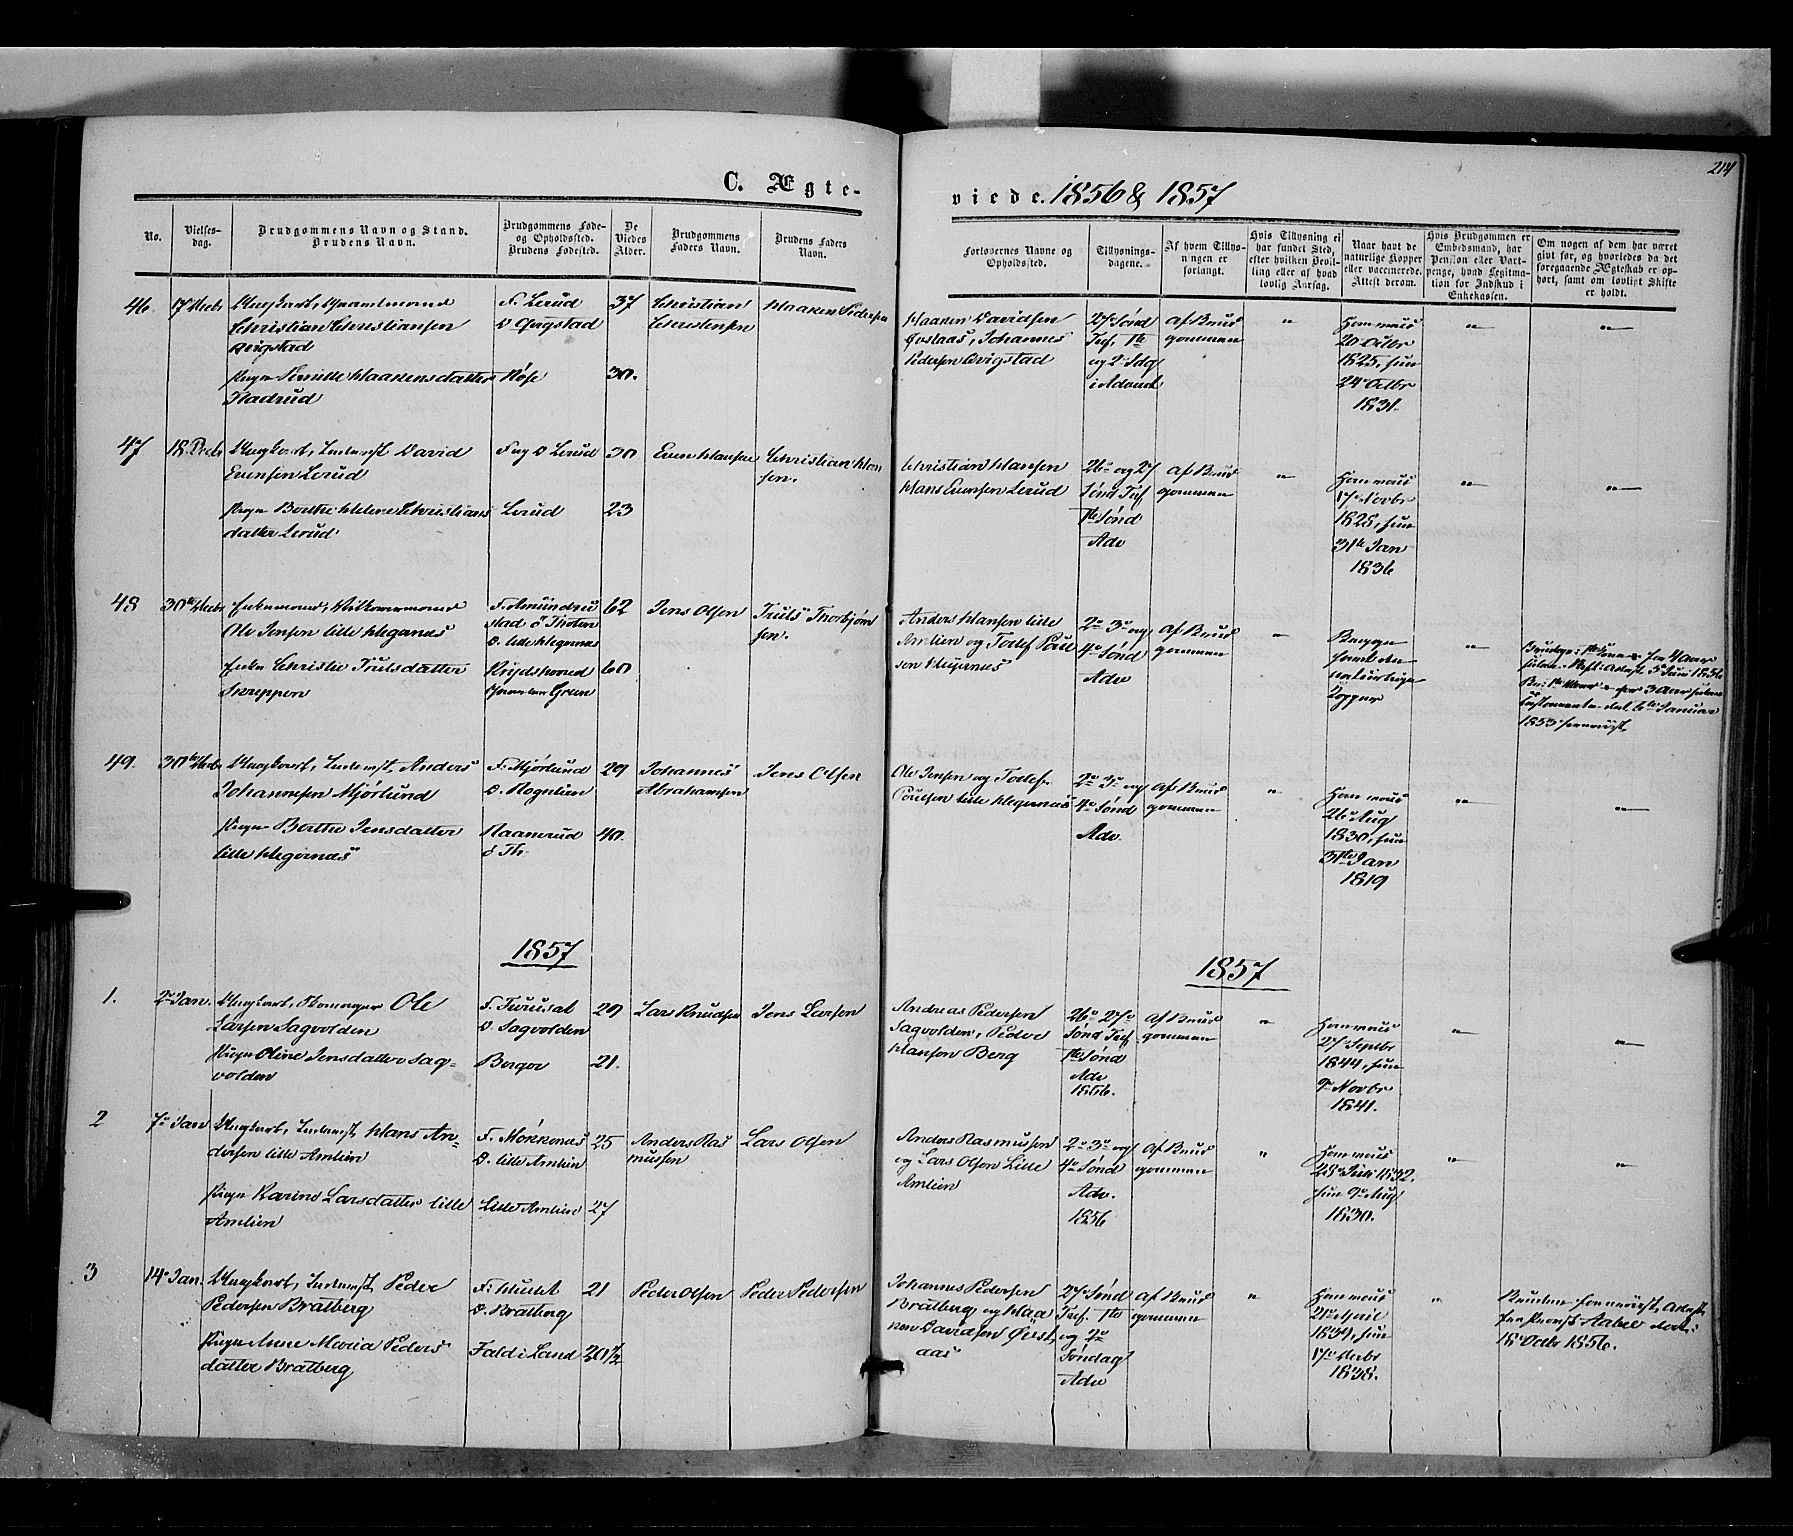 214
C. Ægte-
viede. 1856 & 1857
No.
Vielses-
dag.
Brudgommens Navn og Stand.
Brudens Navn.
Brudgommens Føde-
og Opholdssted.
Brudens Fødested.
De
Viedes
Alder.
Brudgommens
Faders Navn.
Brudens Faders
Navn.
Forlovernes Navne og
Opholdssted.
Tillysnings-
dagene.
Af hvem Tillys-
ningen er
forlangt.
Hvis Tillysning ei
har fundet Sted,
efter hvilken Bevil-
ling eller af hvad
lovlig Aarsag.
Naar havt de
naturlige Kopper
eller vaccinerede.
Attest derom.
Hvis Brudgommen er
Embedsmand, har
Pension eller Vart-
penge, hvad Legitima-
tion for Indskud i
Enkekassen.
Om nogen af dem har været
givt før, og hvorledes da det
foregaaende Ægteskab er op-
hørt, samt om lovligt Skifte
er holdt.
46.
17 Decbr
Ungkarl,
Christian Christiansen
Pige Haakensdatter
F. Lerud
37
30.
Christian
Christensen
Haaken Pedersen
Haaken Davidsen
Johannes
Pedersen
27 Sønd
Tref. 1te
og 2 Sdg
i Advent
Af Brud
gommen
Ham
20 Octbr
1825, hun
24 Octbr
1831.
47
18 Decbr
Ungkarl, Inderst David
Evensen Lerud
Pige Berthe Helene Christians
datter Lerud
F. og O Lerud
Lerud
30
23
Even Hansen
Christian Han
sen.
Christian Hansen
Hans Evensen Lerud
26 og 27
Sønd Tref
1te Sønd
Adv
Af Brud
gommen
Ham
17 Novbr
1828, hun
31te Jan
1836
48
30te Decbr
Enkemand,
Ole Jensen lille Hegernæs
Enke Christie Trulsdatter
O. lille Hegernæs
62
60
Jens Olsen
Truls Thorbjørn
sen.
Anders Hansen lille
Amlien og Tollef Poul
sen Hegernæs
2 3 og
4 Sønd
Adv
Af Brud
gommen
49.
30te Decbr
Ungkarl, Inderst, Anders
Johannesen Mjørlund
Pige Berthe Jensdatter
lille Hegernæs
F. Mjørlund
O. Rognlien
29
40.
Johannes
Abrahamsen
Jens Olsen
Ole Jensen og Tollef
Poulsen lille Hegernæs
2 3 og
4 Sønd
Adv.
Af Brud
gommen
Ham
26 Aug
1830, hun
31te Jan
1819
1857
1857
1.
2 Jan.
Ungkarl, Ole
Larsen Sagvolden
Pige Oline Jensdatter Sag-
volden
O Sagvolden
Berger
29
21.
Lars Knudsen
Jens Larsen
Andreas Pedersen
Sagvolden, Peder
Hansen Berg
26 27
Sønd Tref
1te Sønd
Adv
1856.
Af Brud
gommen
Ham
27 Septbr
1844, hun
Novbr
1841.
2
7 Jan
Ungkarl, Inderst, Hans An-
dersen lille Amlien
Pige Karine Larsdatter lille
Amlien
F. Mokkenæs
O. lille Amlien
Lille Amlien
25
27
Anders Ras
mussen
Lars Olsen
Anders Rasmussen
og Lars Olsen Lille
Amlien
2 3 og
4 Sønd
Adv.
1856
Af Brud
gommen
Ham
28 Juli 1832.
hun 9 Aug
1830.
3
14 Jan.
Ungkarl, Inderst, Peder
Pedersen Bratberg
Pige Anne Maria Peders
datter Bratberg
O. Bratberg
Fald i Land
21
20 1/2
Peder Olsen
Peder Pedersen
Johannes Pedersen
Bratberg og Haa
ken Davidsen
aas
27 Sønd
Tref. 1te
og 2
Søndag
Adv
Af Brud
gommen
Ham
April
hun
17 Decbr
1838.
Bruden Attest
fra
18 Octbr 1856.